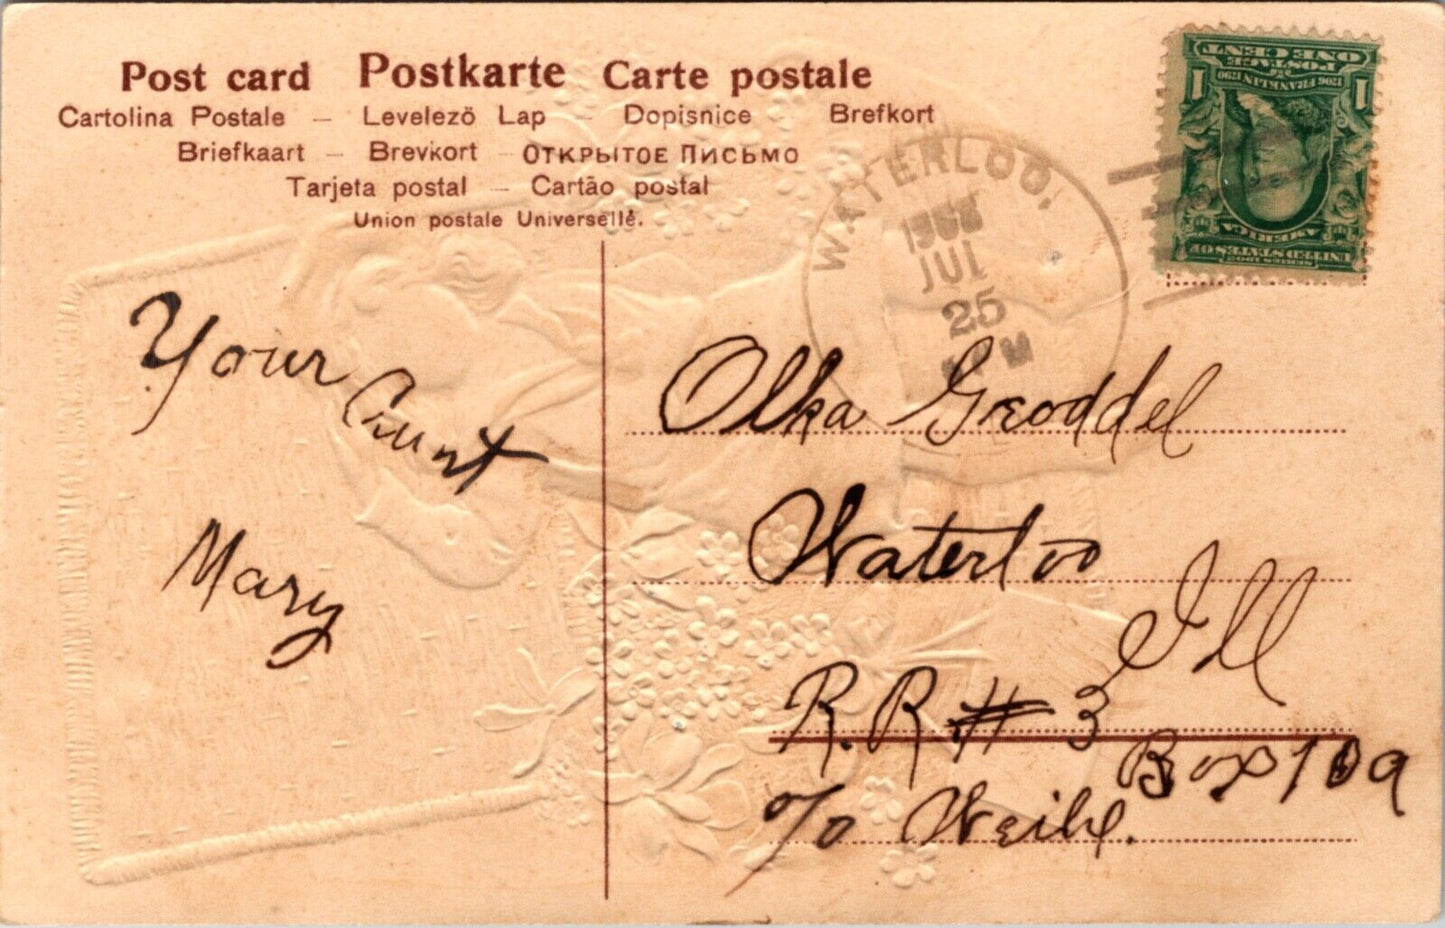 Post card Postkarte Carte postale
Cartolina Postale — Levelezö Lap — Dopisnice Brefkort
Briefkaart — Brevkort — Открытое письмо
Tarjeta postal — Cartão postal
Union postale Universelle.
WATERLOO,
JUL
25
M
1706 FRANKLIN 1790
POSTAGE
ONE CENT
1 1
SERIES 1902
UNITED STATES OF
AMERICA
Your Aunt
Mary
Olka Groddel
Waterloo
Ill
R.R # 3
Box 109
c/o Weihl.